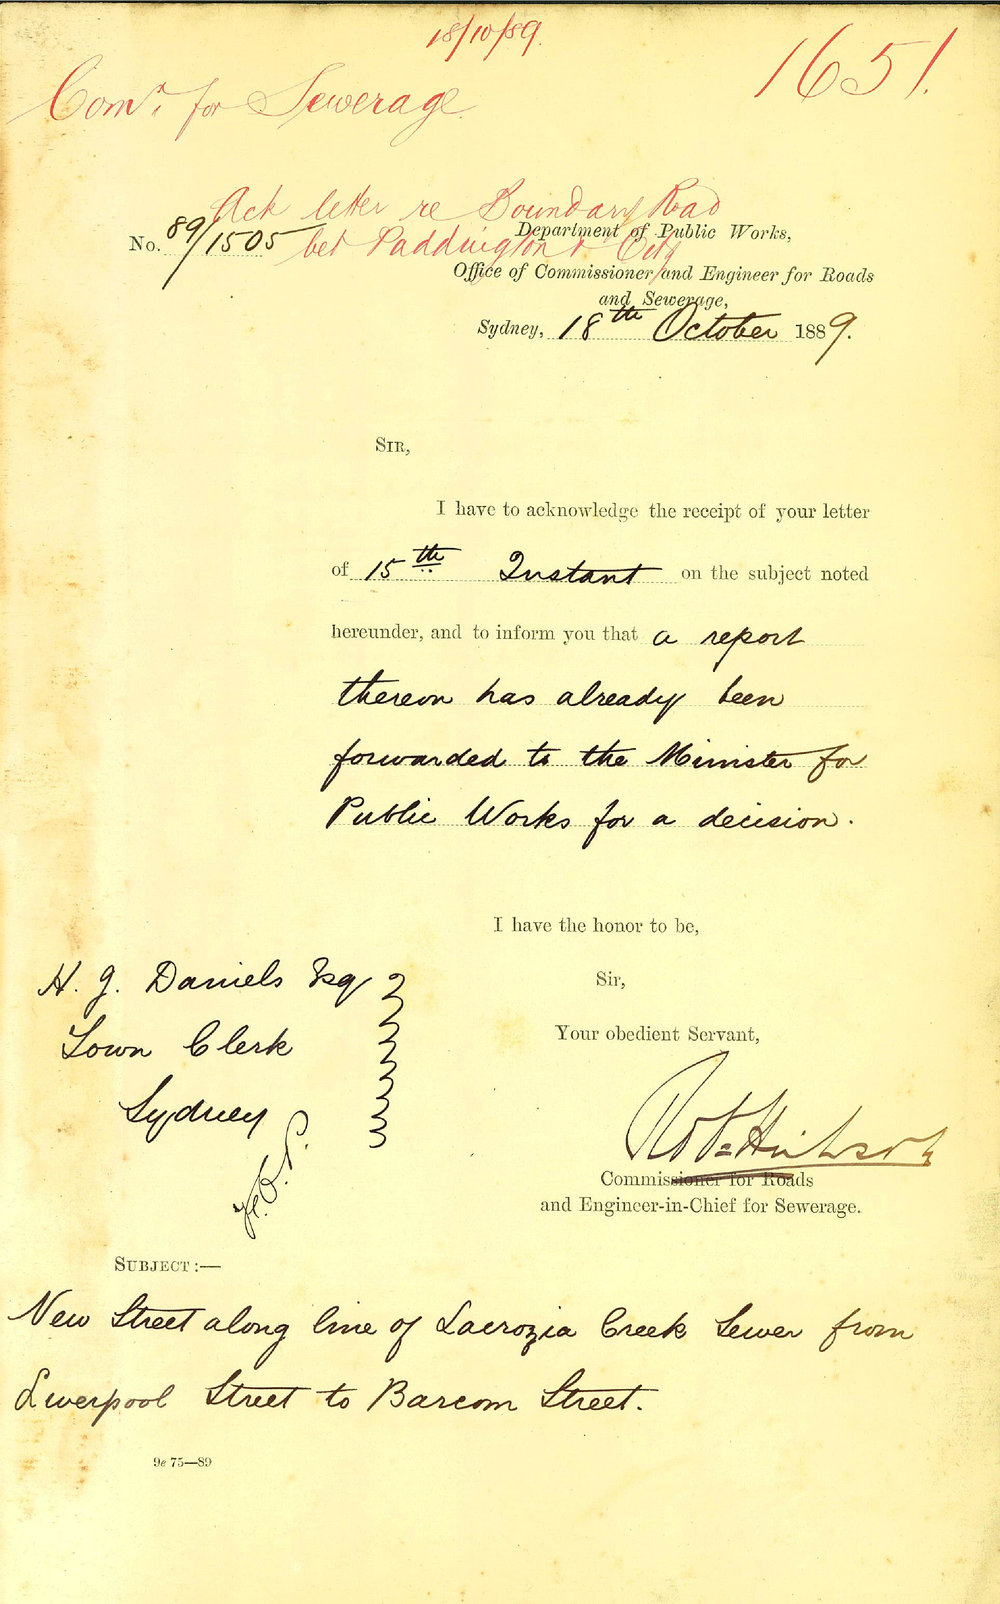 18/10/89.
1651.
Comr. for Sewerage.
Ack letter re Boundary Road
bet Paddington & City
No. 89/1505
Department of Public Works,
Office of Commissioner and Engineer for Roads
and Sewerage,
Sydney, 18th October 1889.
SIR,
I have to acknowledge the receipt of your letter
of 15th Instant on the subject noted
hereunder, and to inform you that a report
thereon has already been
forwarded to the Minister for
Public Works for a decision.
I have the honor to be,
Sir,
Your obedient Servant,
Commissioner for Roads
and Engineer-in-Chief for Sewerage.
H. J. Daniels Esq
Town Clerk
Sydney
SUBJECT:—
New Street along line of Lacrozia Creek Sewer from
Liverpool Street to Barcom Street.
9e 75—89